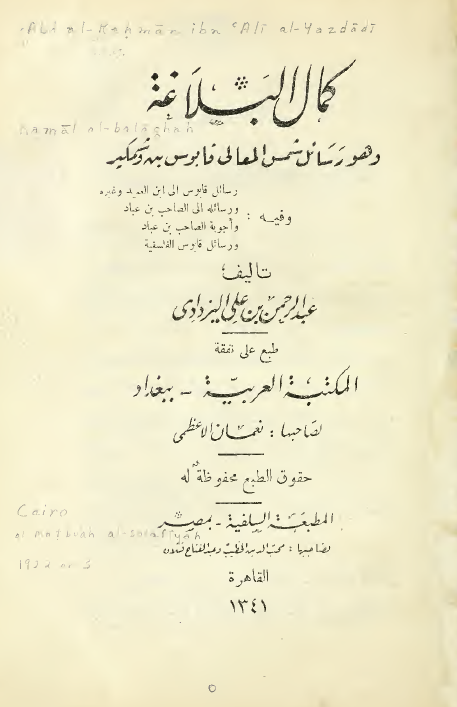 ʿAbd al-Raḥmān ibn ʿAlī al-Yazdādī
كمال البلاغة
Kamāl al-balāghah
وهو رسائل شمس المعالي قابوس بن وشمكير
وفيه :
رسائل قابوس الى ابن العميد وغيره
ورسائله الى الصاحب بن عباد
وأجوبة الصاحب بن عباد
ورسائل قابوس الفلسفية
تأليف
عبد الرحمن بن علي اليزدادي
طبع على نفقة
المكتبة العربية - ببغداد
لصاحبها : نعمان الاعظمي
حقوق الطبع محفوظة له
Cairo
المطبعة السلفية - بمصر
al maṭbaʿah al-salafīyah
لصاحبيها : محب الدين الخطيب وعبد الفتاح قتلان
1922 or 3
القاهرة
١٣٤١